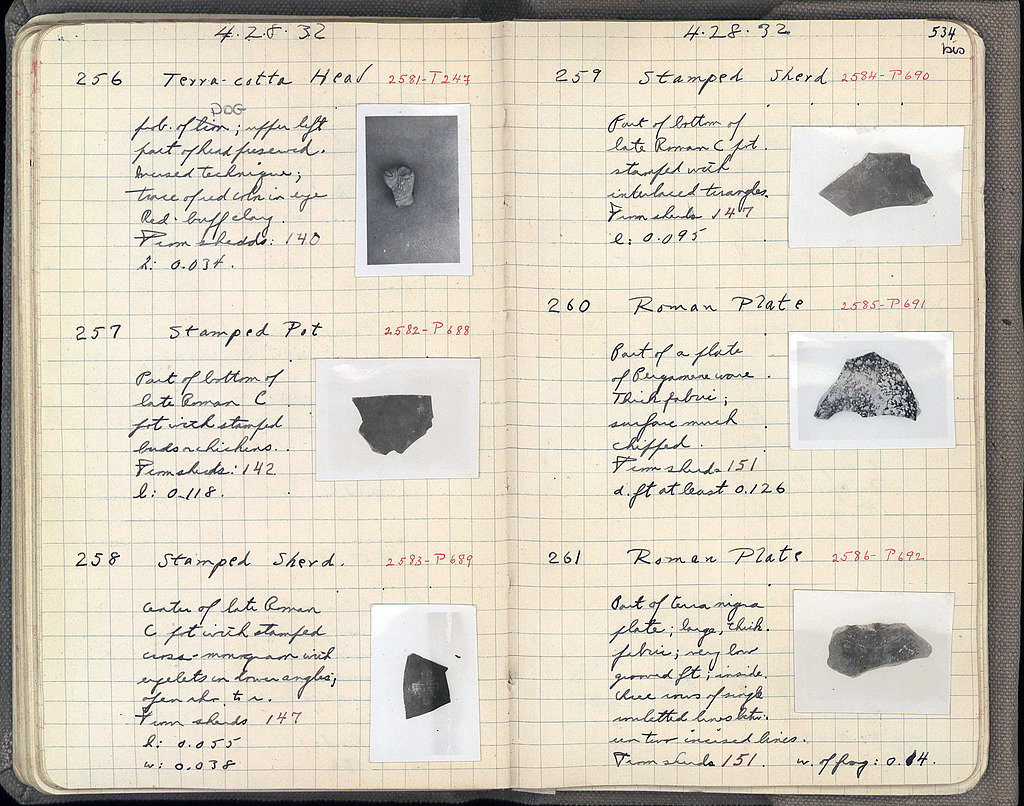 4.28.32
256 Terra-cotta Head 2581-T247
DOG
prob. of lion; upper left
part of head preserved.
Incised technique;
trace of red color in eye
Red-buff clay.
From sherds: 140
h: 0.034.
257 Stamped Pot 2582-P688
Part of bottom of
late Roman C
pot with stamped
birds
From sherds: 142
l: 0.118.
258 Stamped Sherd. 2583-P689
Center of late Roman
C pot with stamped
cross-monogram with
eyelets in lower angles;
open rho to r.
From sherds 147
h: 0.055
w: 0.038
4.28.32
534
bis
259 Stamped Sherd 2584-P690
Part of bottom of
late Roman C pot.
stamped with
interlaced triangles.
From sherds 147
l: 0.095
260 Roman Plate 2585-P691
Part of a plate
of Pergamene ware.
Thick fabric;
surface much
chipped.
From sherds 151
d. ft at least 0.126
261 Roman Plate 2586-P692
Part of terra nigra
plate; large, thick
fabric; very low
grooved ft; inside
three rows of single
rouletted lines betw.
two incised lines.
From sherds 151. w. of frag: 0.14.